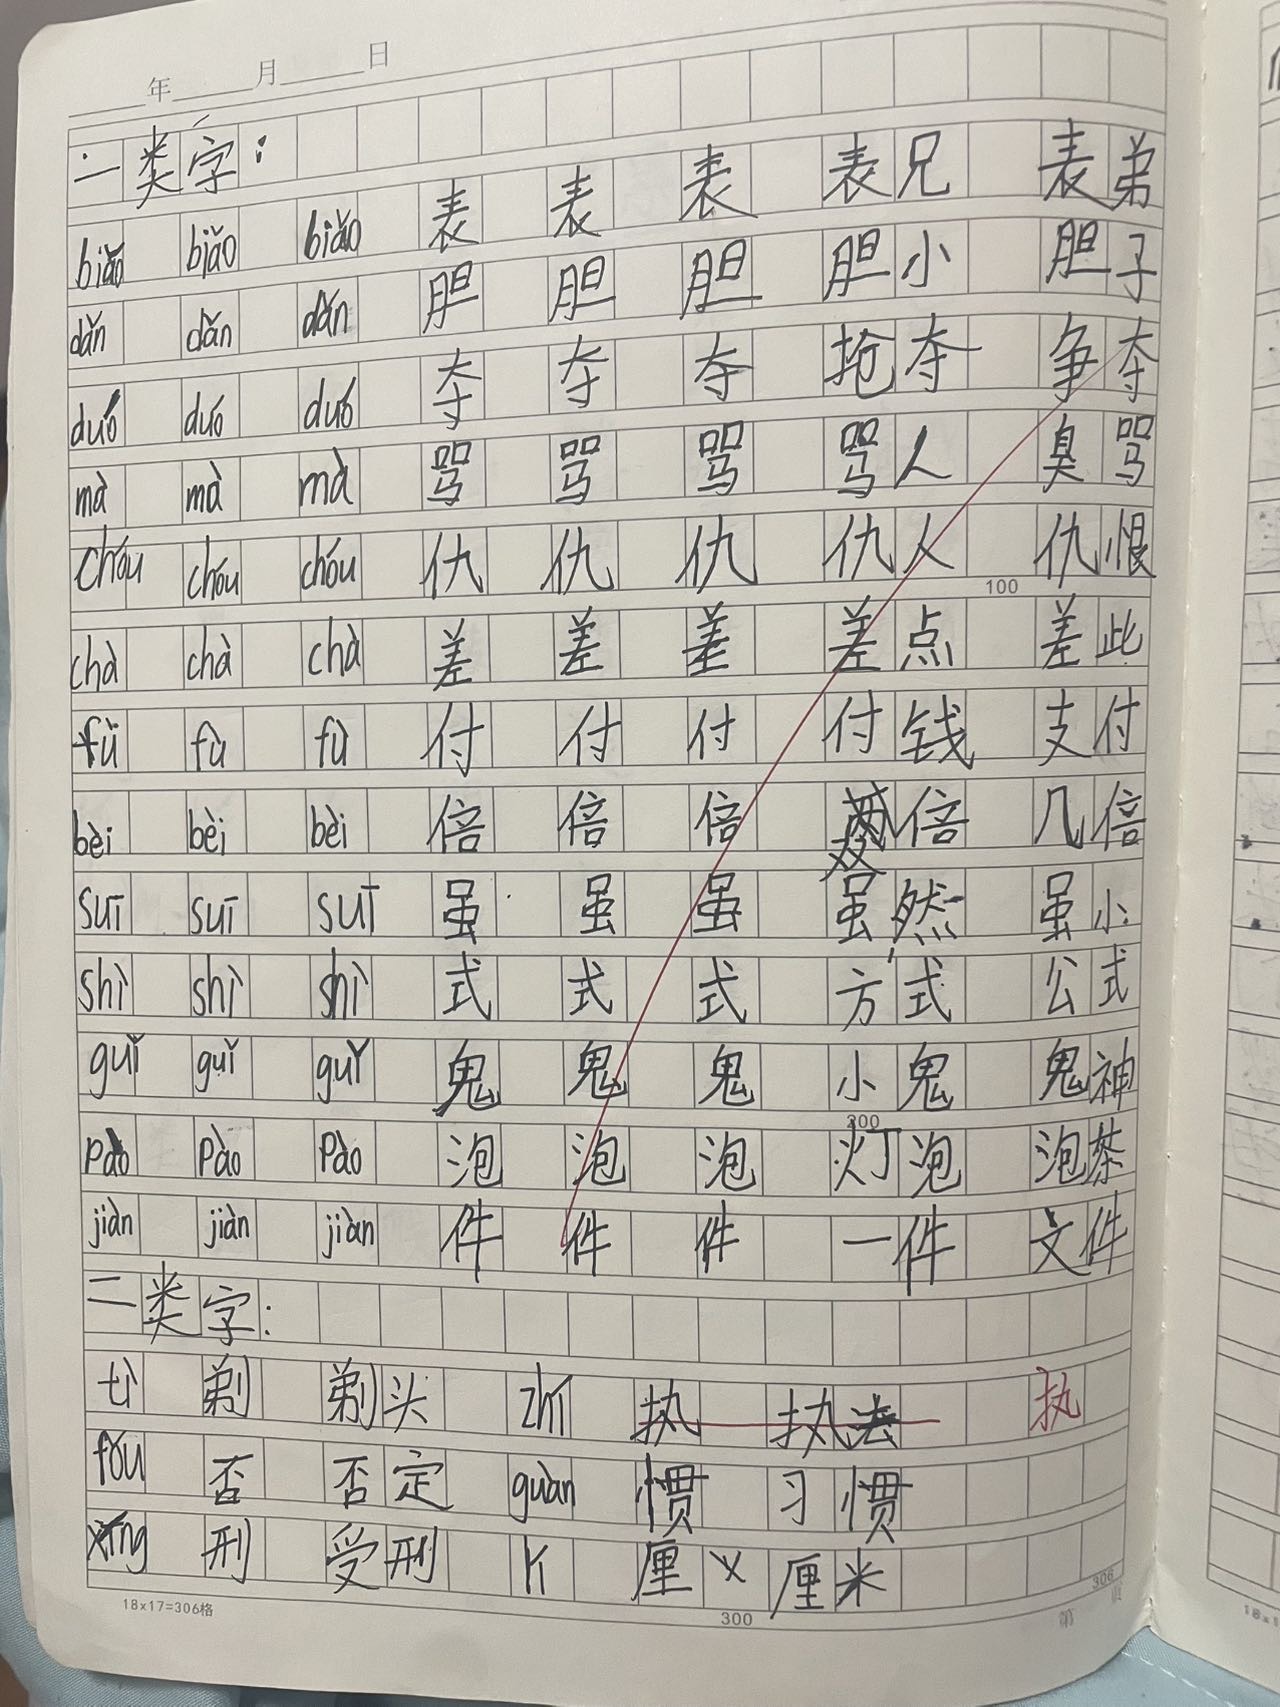 年 月 日
一类字：
biǎo biǎo biǎo 表 表 表 表兄 表弟
dǎn dǎn dǎn 胆 胆 胆 胆小 胆子
duó duó duó 夺 夺 夺 抢夺 争夺
mà mà mà 骂 骂 骂 骂人 臭骂
chóu chóu chóu 仇 仇 仇 仇人 仇恨
100
chà chà chà 差 差 差 差点 差些
fù fù fù 付 付 付 付钱 支付
bèi bèi bèi 倍 倍 倍 双倍 几倍
suī suī suī 虽 虽 虽 虽然 虽小
shì shì shì 式 式 式 方式 公式
guǐ guǐ guǐ 鬼 鬼 鬼 小鬼 鬼神
200
pào pào pào 泡 泡 泡 灯泡 泡茶
jiàn jiàn jiàn 件 件 件 一件 文件
二类字：
tì 剃 剃头 zhí 执 执法 执
fǒu 否 否定 guàn 惯 习惯
xíng 刑 受刑 lí 厘 厘米
18x17=306格 300 306